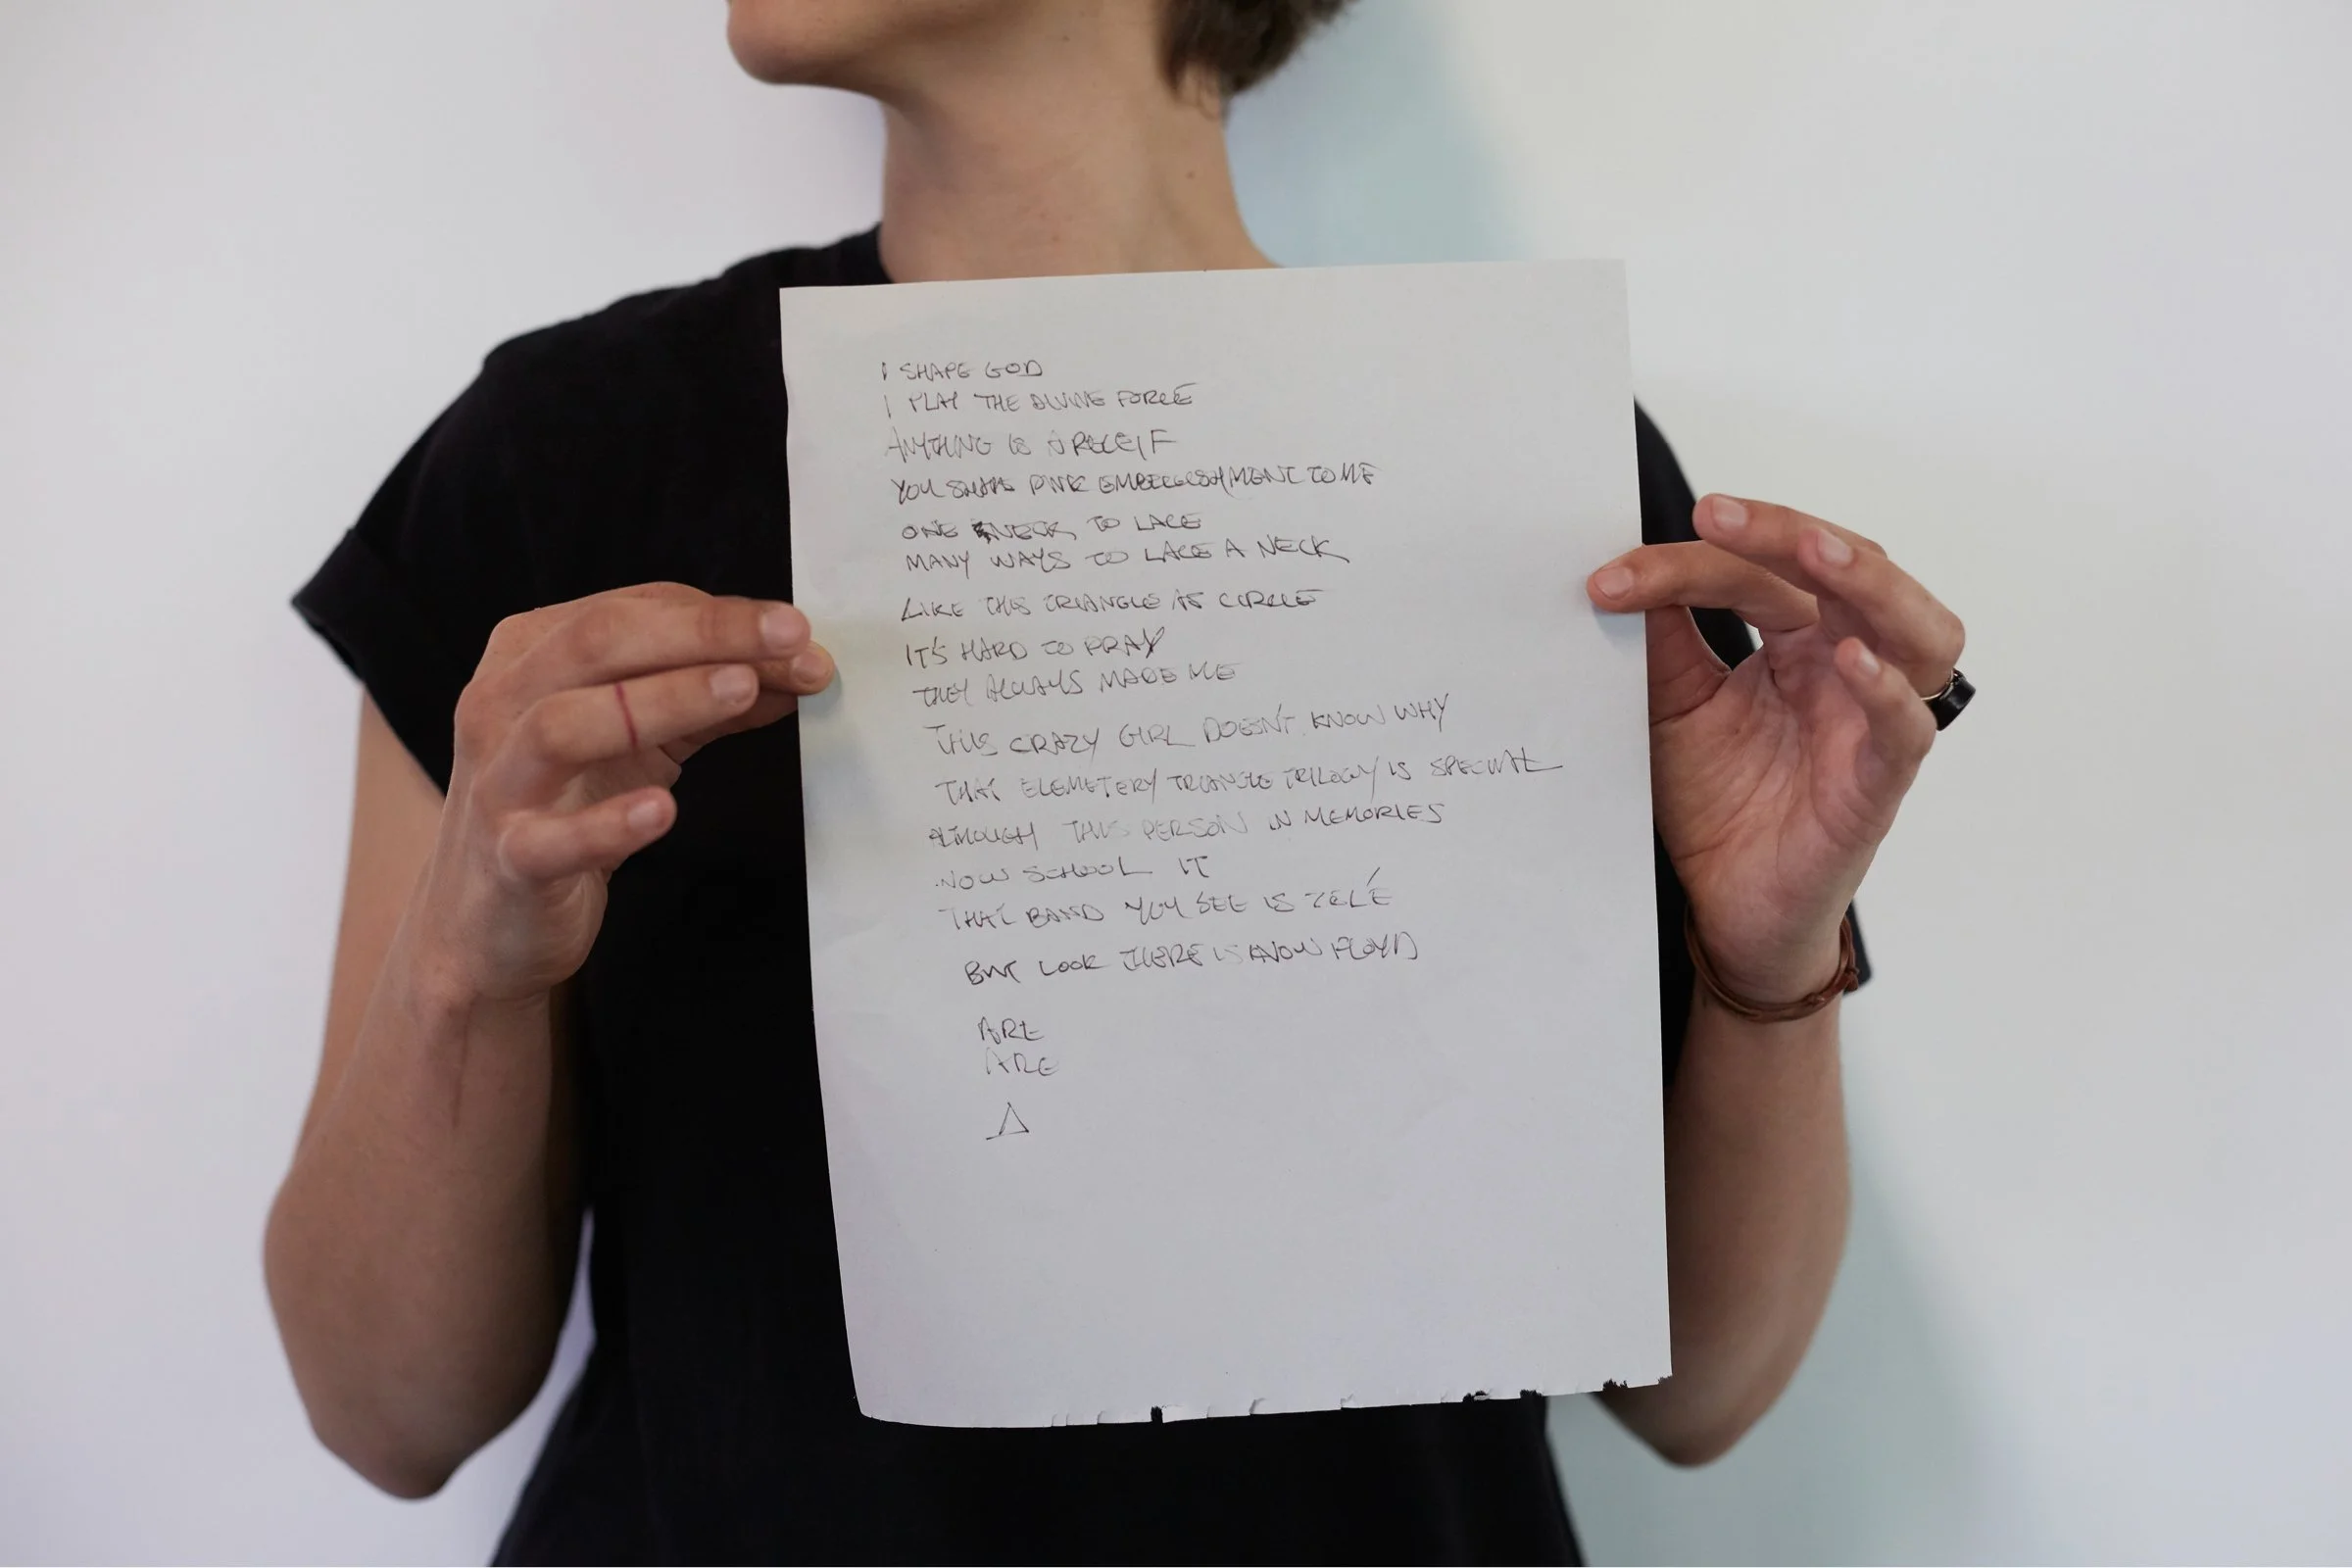 I SHAPE GOD
I PLAY THE DIVINE FORCE
ANYTHING IS
YOU PINK EMBELLISHMENT TO ME
ONE NECK TO LACE
MANY WAYS TO LACE A NECK
LIKE THIS TRIANGLE AS CIRCLE
IT'S HARD TO PRAY
THEY ALWAYS MADE ME
THIS CRAZY GIRL DOESN'T KNOW WHY
THAT ELEMETERY TRIANGLE TRILOGY IS SPECIAL
ALTHOUGH THIS PERSON IN MEMORIES
NOW SCHOOL IT
THAT BAND YOU SEE IS TELÉ
BUT LOOK THERE IS KNOW FLOYD
ARE
ARE